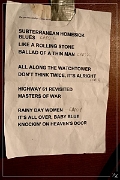 SUBTERRANEAN HOMESICK
BLUES
LIKE A ROLLING STONE
BALLAD OF A THIN MAN
ALL ALONG THE WATCHTOWER
DON'T THINK TWICE, IT'S ALRIGHT
HIGHWAY 61 REVISITED
MASTERS OF WAR
RAINY DAY WOMEN
IT'S ALL OVER, BABY BLUE
KNOCKIN' ON HEAVEN'S DOOR